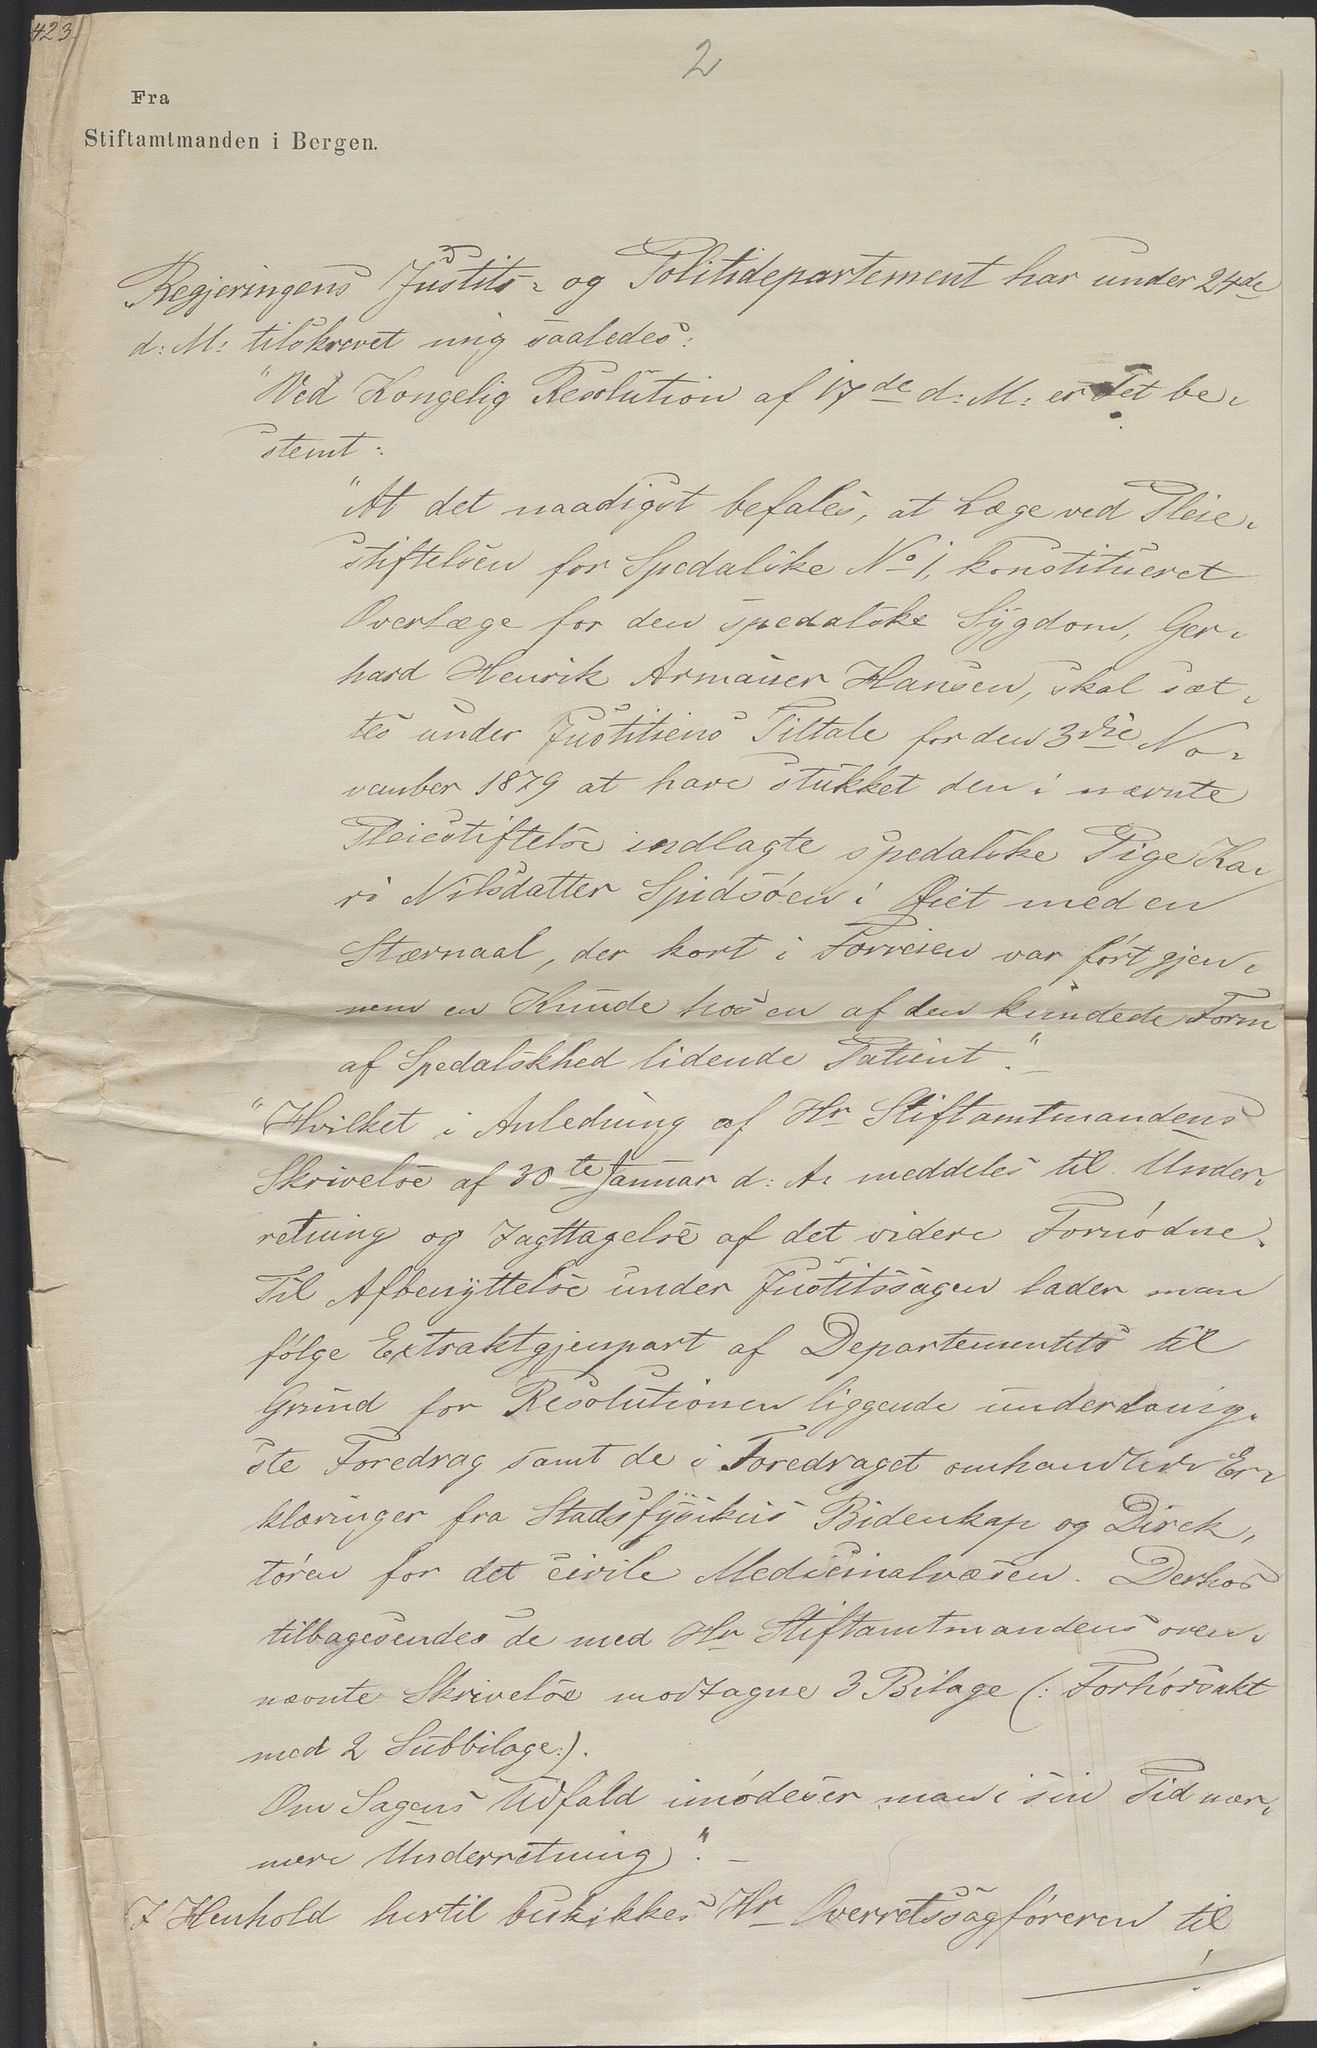 423.
2
Fra
Stiftamtmanden i Bergen.
"Regjeringens Justits- og Politidepartement har under 24de
d: M: tilskrevet mig saaledes:
"Ved Kongelig Resolution af 17de d: M: er det be-
stemt:
"At det naadigst befales, at Læge ved Pleie-
stiftelsen for Spedalske No 1, konstitueret
Overlæge for den spedalske Sygdom, Ger-
hard Henrik Armauer Hansen, skal sæt-
tes under Justitiens Tiltale for den 3die No-
vember 1879 at have stukket den i nævnte
Pleiestiftelse indlagte spedalske Pige Ka-
ri Nilsdatter Spidsöen i Øiet med en
Stærnaal, der kort i Forveien var fört gjen-
nem en Knude hos en af den knudede Form
af Spedalskhed lidende Patient."
"Hvilket i Anledning af Hr Stiftamtmandens
Skrivelse af 30te Januar d: A: meddeles til Under-
retning og Iagttagelse af det videre Fornödne.
Til Afbenyttelse under Justitssagen lader man
fölge Extraktgjenpart af Departementets til
Grund for Resolutionen liggende underdanig-
ste Foredrag samt de i Foredraget omhandlede Er-
klæringer fra Stadsfysikus Bidenkap og Direk-
tören for det civile Medicinalvæsen. Derhos
tilbagesendes de med Hr Stiftamtmandens oven-
nævnte Skrivelse modtagne 3 Bilage (: Forhörsakt
med 2 Subbilage:).
Om Sagens Udfald imödeser man i sin Tid nær-
mere Underretning".
I Henhold hertil beskikkes Hr Overretssagföreren til